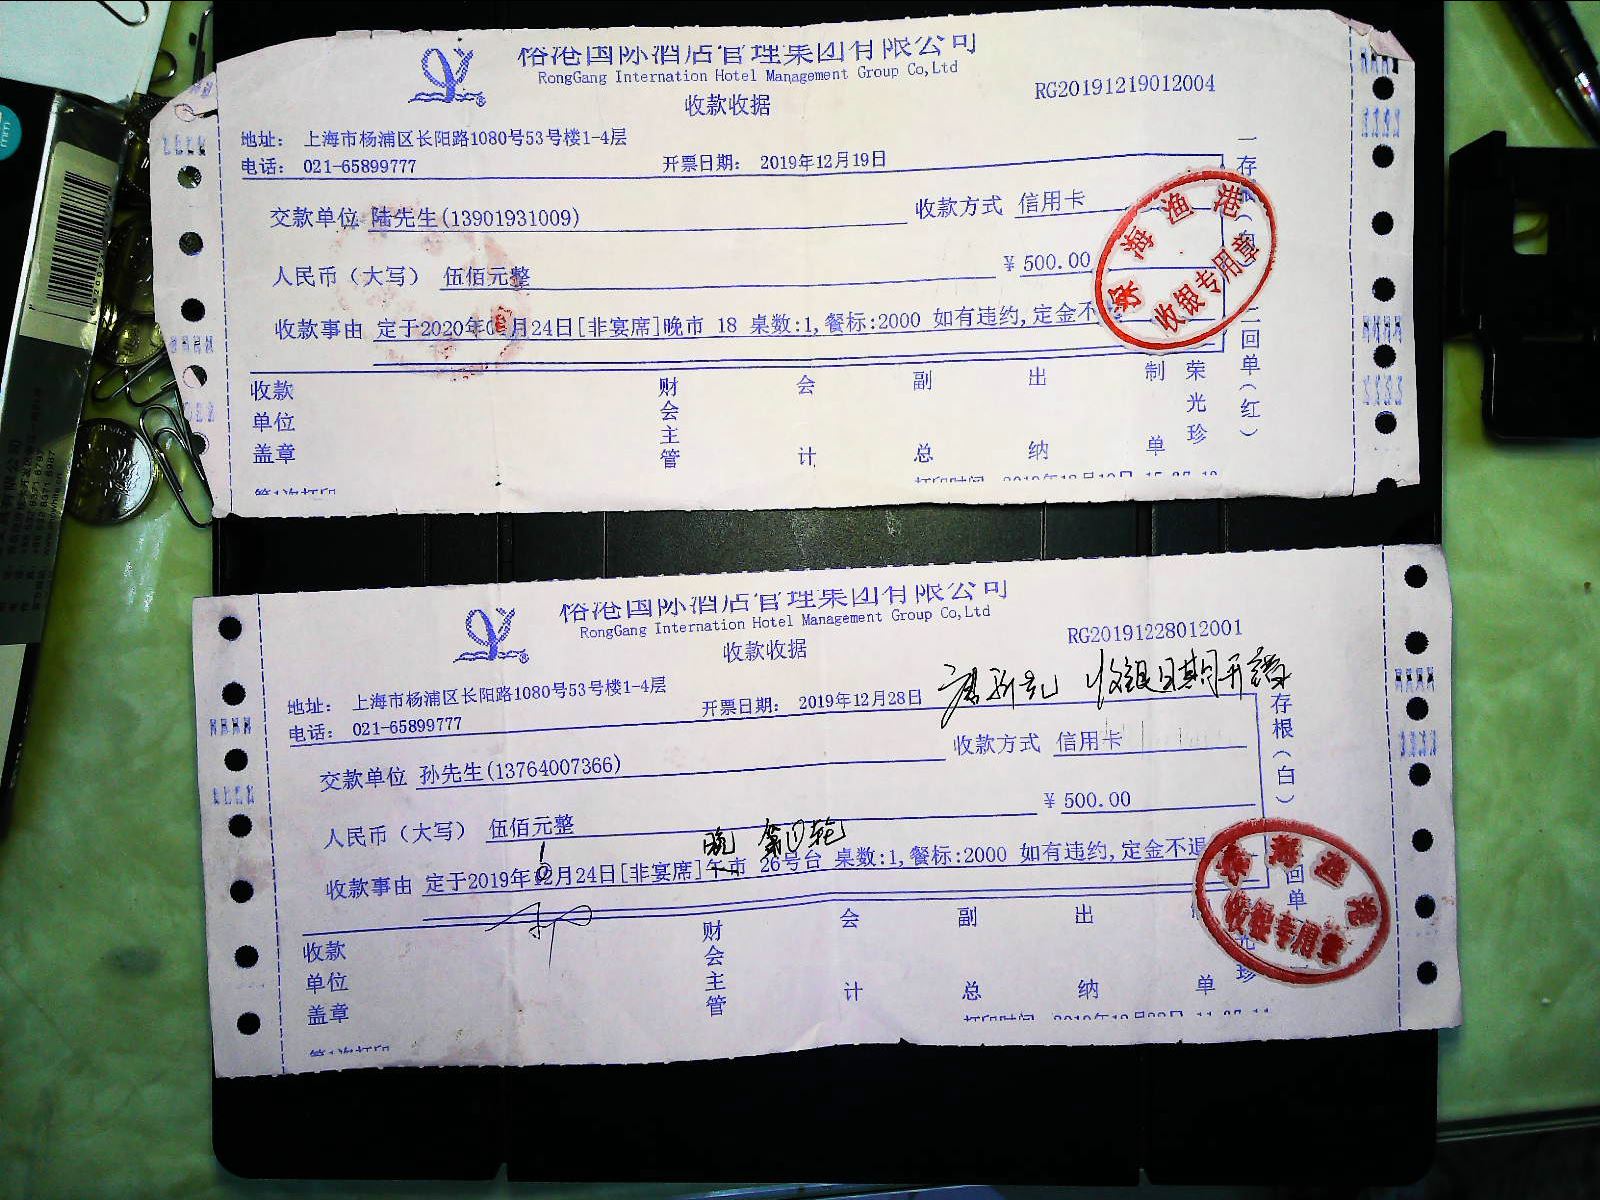 裕港国际酒店管理集团有限公司
RongGang Internation Hotel Management Group Co,Ltd
收款收据
RG20191219012004
地址： 上海市杨浦区长阳路1080号53号楼1-4层
电话： 021-65899777 开票日期： 2019年12月19日
交款单位 陆先生(13901931009) 收款方式 信用卡
人民币（大写） 伍佰元整 ¥ 500.00
收款事由 定于2020年 月24日[非宴席]晚市 18 桌数:1,餐标:2000 如有违约,定金不
收款单位盖章 财会主管 会计 副总 出纳 制单 荣光珍
第1次打印
一存根（白）二回单（红）
海渔港
收银专用章
裕港国际酒店管理集团有限公司
RongGang Internation Hotel Management Group Co,Ltd
收款收据
RG20191228012001
地址： 上海市杨浦区长阳路1080号53号楼1-4层
电话： 021-65899777 开票日期： 2019年12月28日
收银日期开错
交款单位 孙先生(13764007366) 收款方式 信用卡
人民币（大写） 伍佰元整 ¥ 500.00
晚 第 轮
收款事由 定于2019年12月24日[非宴席]午市 26号台 桌数:1,餐标:2000 如有违约,定金不退
收款单位盖章 财会主管 会计 副总 出纳 单 光珍
第1次打印
存根（白） 回单
海渔港
收银专用章